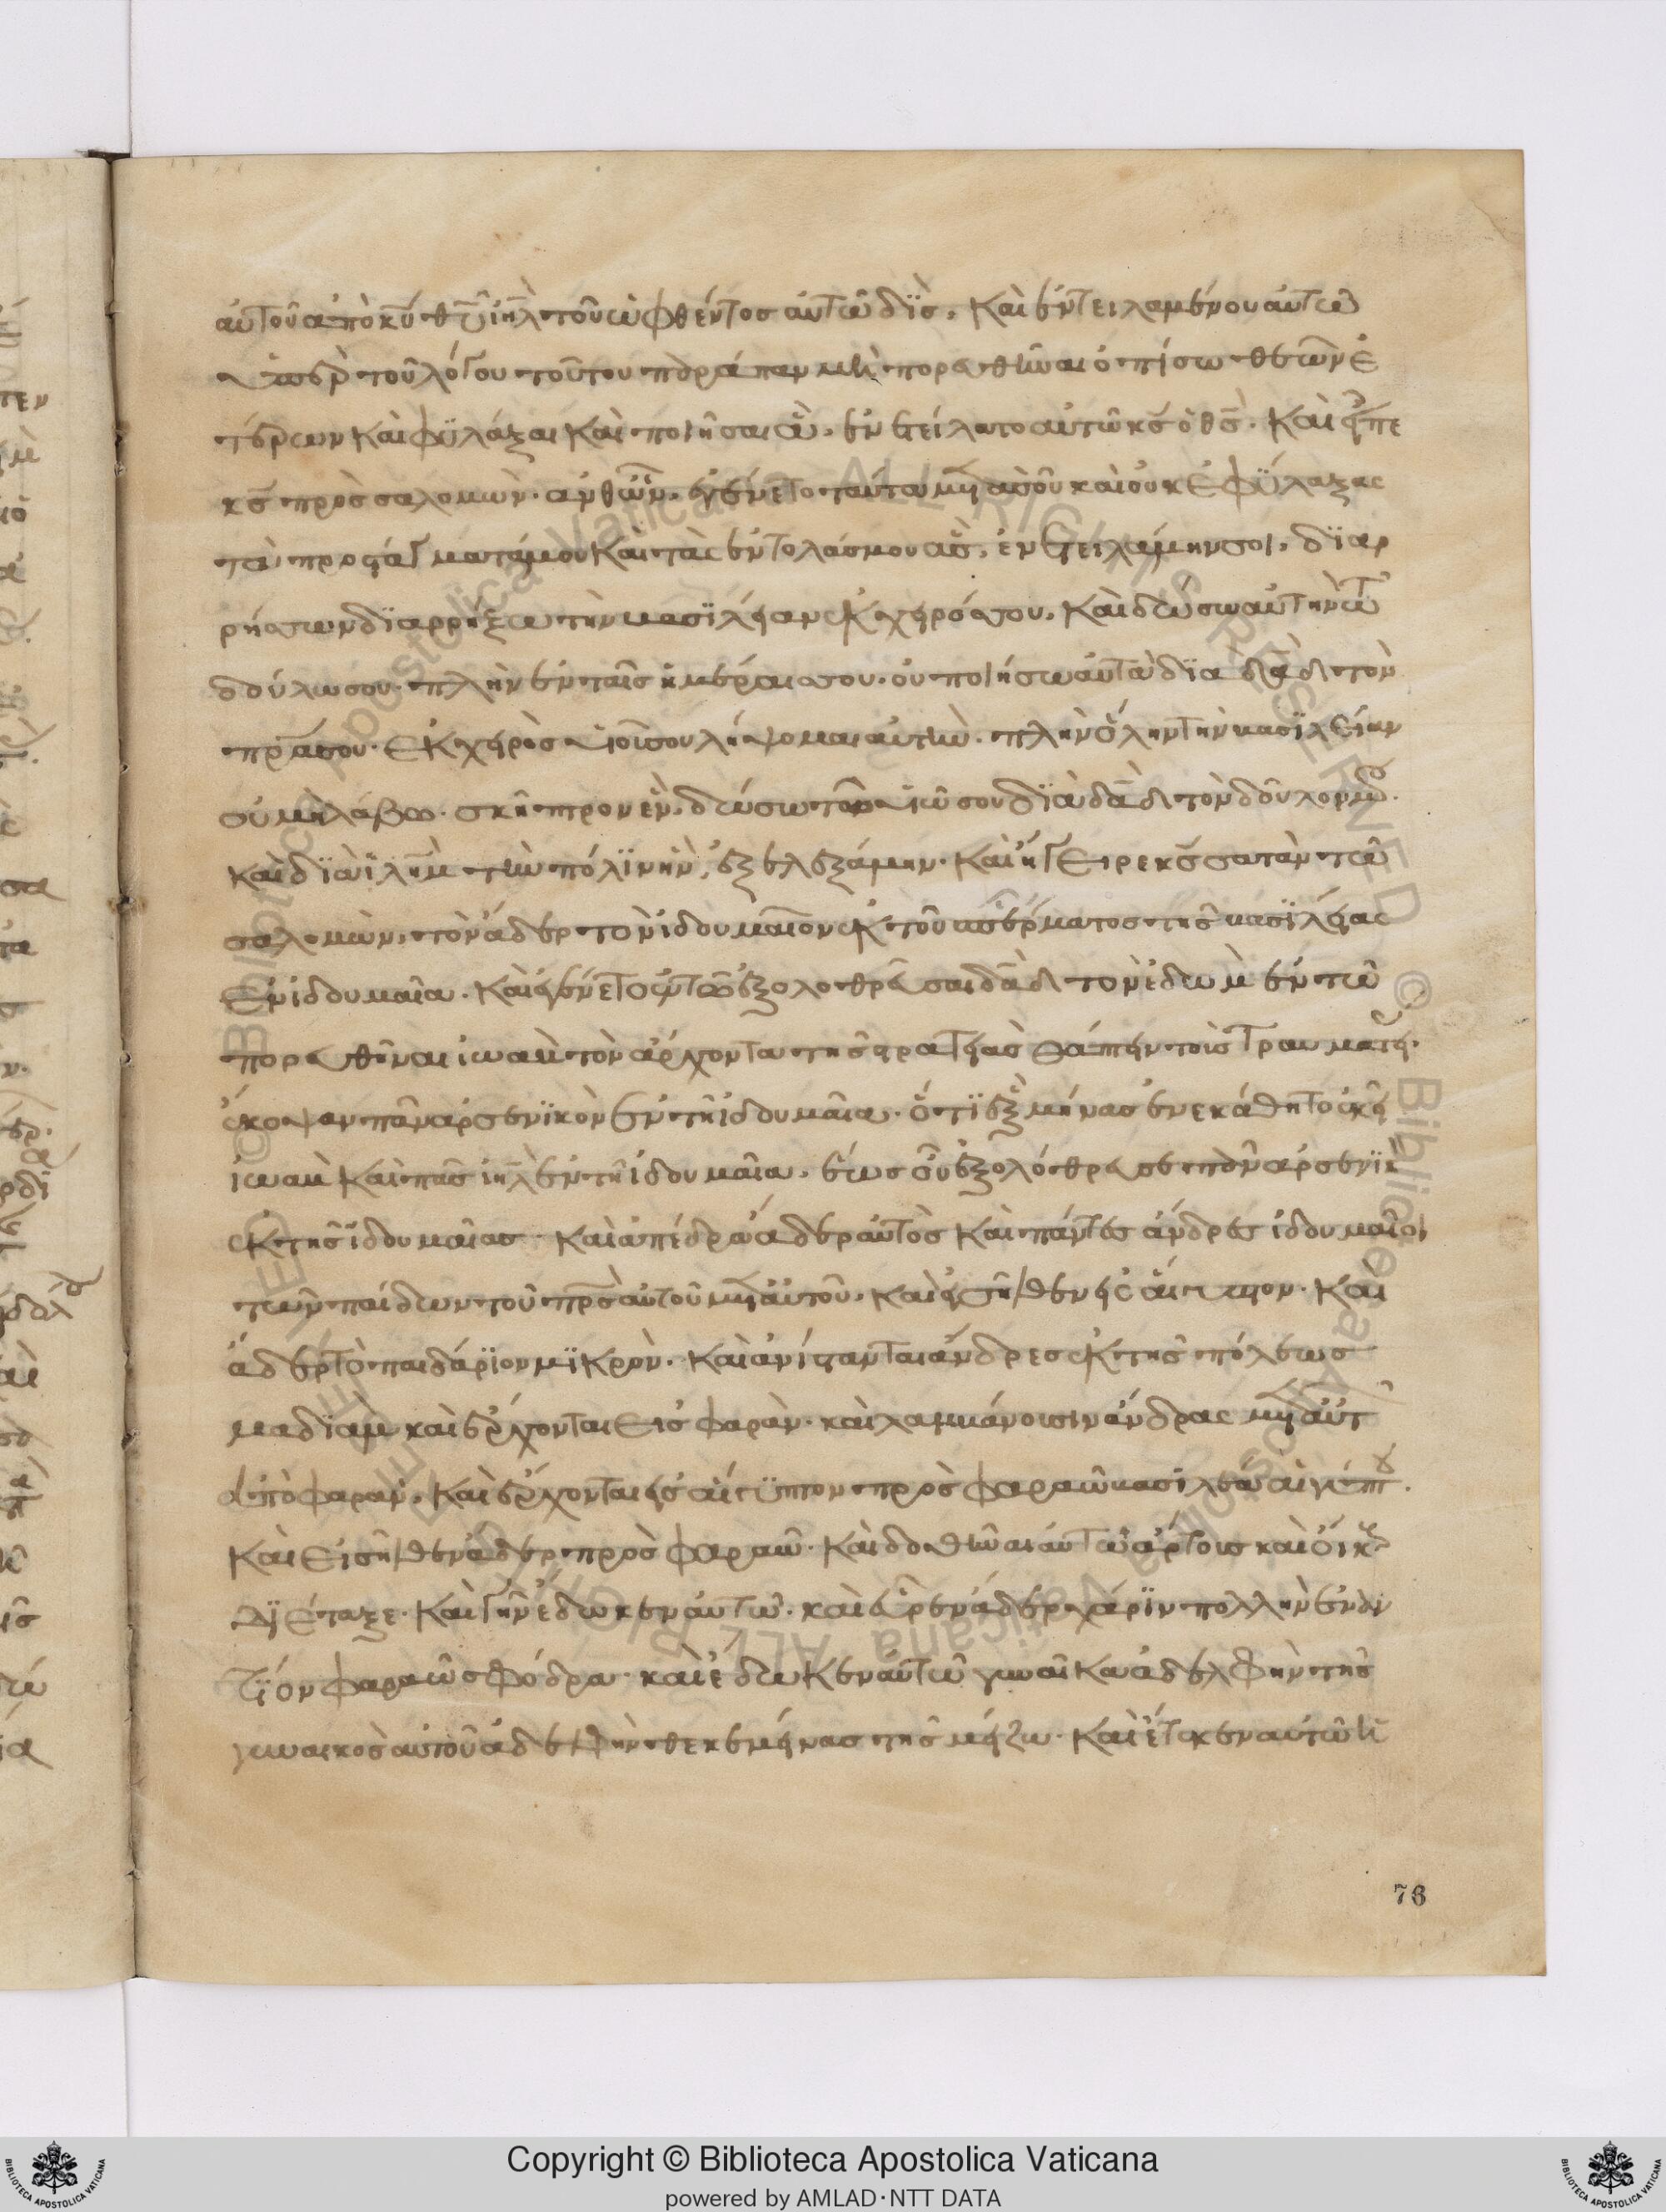 αὐτοῦ ἀπὸ κ̅υ̅ θ̅υ̅ ι̅η̅λ̅ τοῦ ὠφθέντος αὐτῶ δὶς, καὶ ἐντειλαμένου αὐτῶ
ὑπὲρ τοῦ λόγου τούτου παράπαν μὴ πορευθῆναι ὀπίσω θεῶν ἑ
τέρων καὶ φυλάξαι καὶ ποιῆσαι ἃ, ἐνετείλατο αὐτῶ κ̅ς̅ ὁ θ̅ς̅. καὶ εἶπε
κ̅ς̅ πρὸς σαλομὼν. ἀνθ' ὧν, ἐγένετο ταῦτα μετὰ σοῦ καὶ οὐκ ἐφύλαξας
τὰ προστάγματά μου καὶ τὰς ἐντολάς μου ἃς, ἐνετειλάμην σοι, διαρ
ρήσσων διαρρήξω τὴν βασιλείαν ἐκ χειρός σου, καὶ δώσω αὐτὴν τῶ
δούλω σου. πλὴν ἐν ταῖς ἡμέραις σου. οὐ ποιήσω αὐτὰ διὰ δ̅α̅δ̅ τὸν
π̅ρ̅α̅ σου. ἐκ χειρὸς υἱοῦ σου λήψομαι αὐτὴν. πλὴν ὅλην τὴν βασιλείαν
οὐ μὴ λάβω. σκῆπτρον ἓν, δώσω τῶ υἱῶ σου διὰ δ̅α̅δ̅ τὸν δοῦλόν μου.
καὶ διὰ ι̅λ̅η̅μ̅ τὴν πόλιν ἣν, ἐξελεξάμην. καὶ ἤγειρε κ̅ς̅ σατὰν τῶ
σαλομὼν, τὸν ἄδερ τὸν ἰδουμαῖον ἐκ τοῦ σπέρματος τῆς βασιλείας
ἐν ἰδουμαία. καὶ ἐγένετο ἐν τῶ ἐξολοθρεῦσαι δ̅α̅δ̅ τὸν ἐδὼμ ἐν τῶ
πορευθῆναι ἰωαβ τὸν ἄρχοντα τῆς στρατείας θάπτειν τοὺς τραυματί.
ἔκοψαν πᾶν ἀρσενικὸν ἐν τῆ ἰδουμαία. ὅτι ἓξ μῆνας ἐνεκάθητο ἐκεῖ
ἰωαβ καὶ πᾶς ι̅η̅λ̅ ἐν τῆ ἰδουμαία. ἕως οὗ ἐξολόθρευσε πᾶν ἀρσενικ
ἐκ τῆς ἰδουμαίας. καὶ ἀπέδρα ἄδερ αὐτὸς καὶ πάντες ἄνδρες ἰδουμαῖοι
τῶν παίδων τοῦ π̅ρ̅ς̅ αὐτοῦ μετ' αὐτοῦ. καὶ εἰσῆλθεν εἰς αἴγυπτον. καὶ
ἄδερ τὸ παιδάριον μικρὸν. καὶ ἀνίστανται ἄνδρες ἐκ τῆς πόλεως
μαδιὰμ καὶ ἔρχονται εἰς φαρὰν. καὶ λαμβάνουσιν ἄνδρας μετ' αὐτ
ἀπὸ φαρὰν. καὶ ἔρχονται εἰς αἴγυπτον πρὸς φαραὼ βασιλέα αἰγύπτου.
καὶ εἰσῆλθεν ἄδερ πρὸς φαραὼ. καὶ δοθῆναι αὐτῶ ἄρτους καὶ οἶκ
διέταξε. καὶ γῆν ἔδωκεν αὐτῶ. καὶ εὗρεν ἄδερ χάριν πολλὴν ἐναν
τίον φαραὼ σφόδρα. καὶ ἔδωκεν αὐτῶ γυναῖκα ἀδελφὴν τῆς
γυναικὸς αὐτοῦ ἀδελφὴν θεκεμείνας τῆς μείζω. καὶ ἔτεκεν αὐτῶ ἡ
76
Copyright © Biblioteca Apostolica Vaticana
powered by AMLAD·NTT DATA